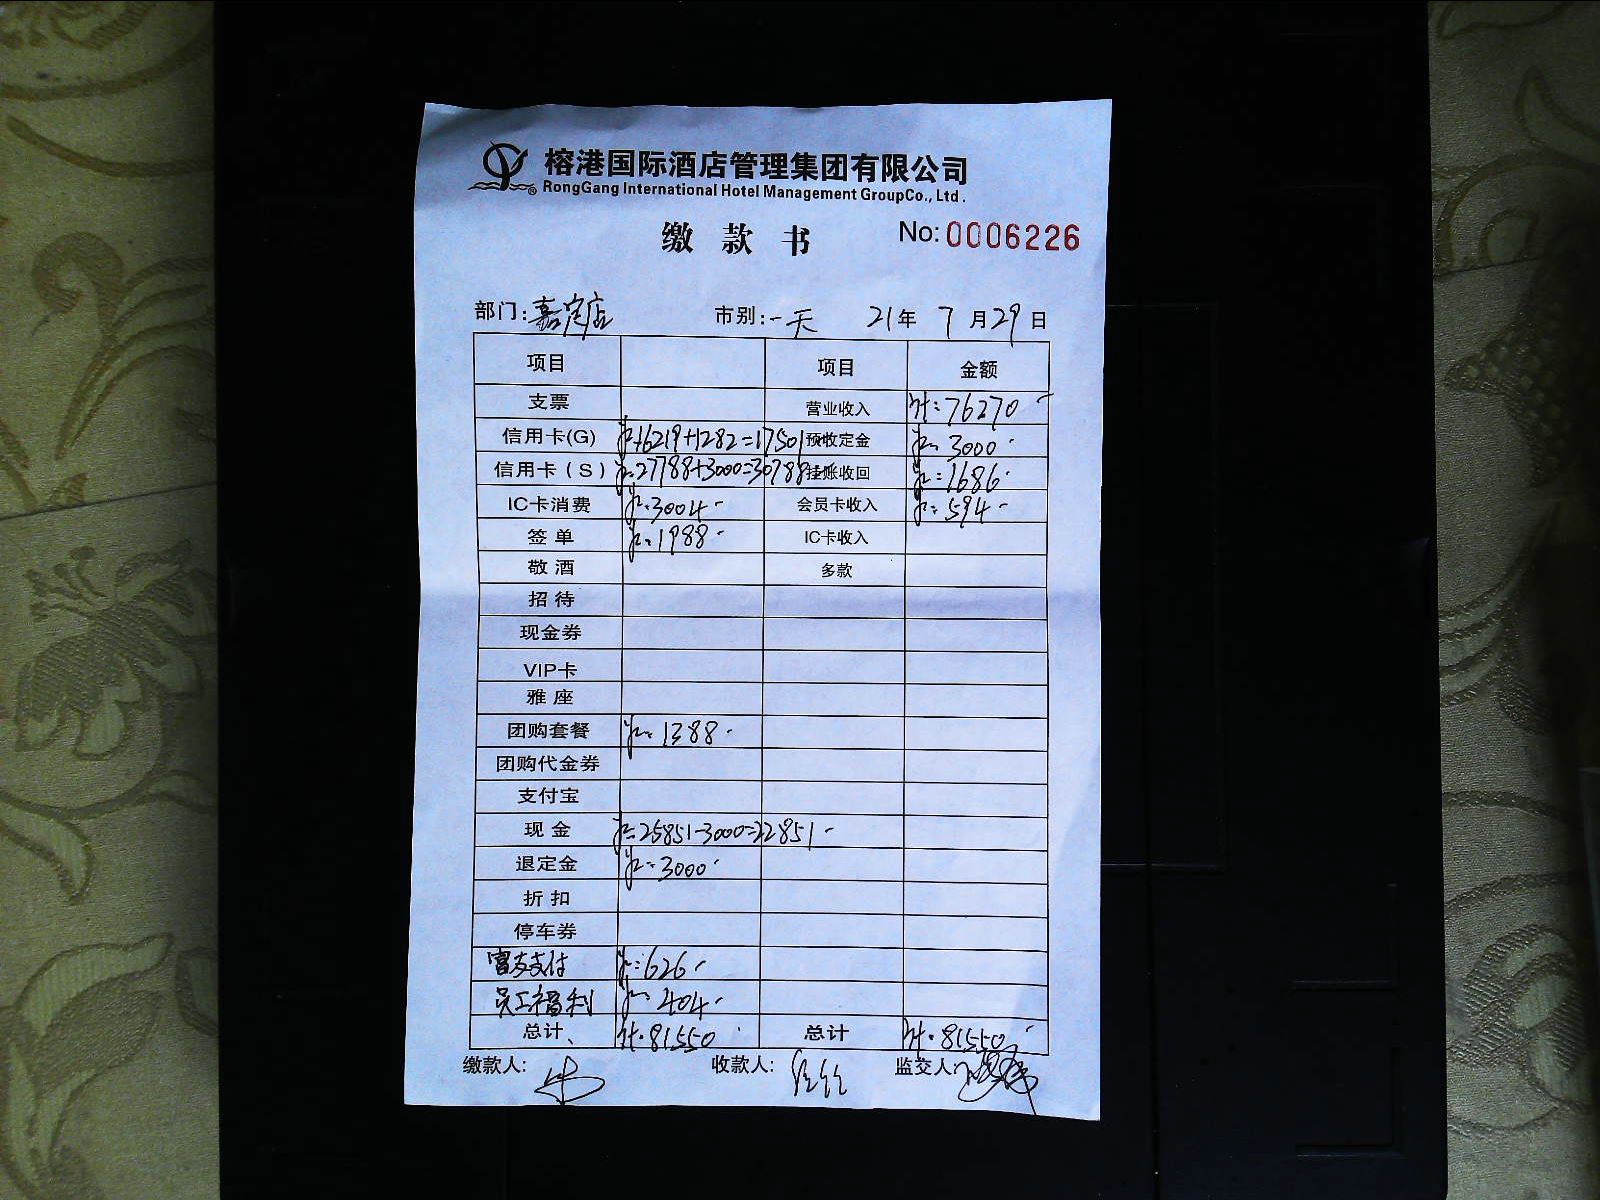 榕港国际酒店管理集团有限公司
RongGang International Hotel Management GroupCo., Ltd.
缴款书 No:0006226
部门:嘉定店 市别:一天 21年7月29日
项目 项目 金额
支票 营业收入 计:76270
信用卡(G) 16219+1282=17501 预收定金 3000
信用卡(S) 27788+3000=30788 挂账收回 1686
IC卡消费 3004 会员卡收入 594
签单 1988 IC卡收入
敬酒 多款
招待
现金券
VIP卡
雅座
团购套餐 1388
团购代金券
支付宝
现金 25851-3000=22851
退定金 3000
折扣
停车券
富友支付 626
员工福利 404
总计 计:81550 总计 计:81550
缴款人: 收款人: 监交人: